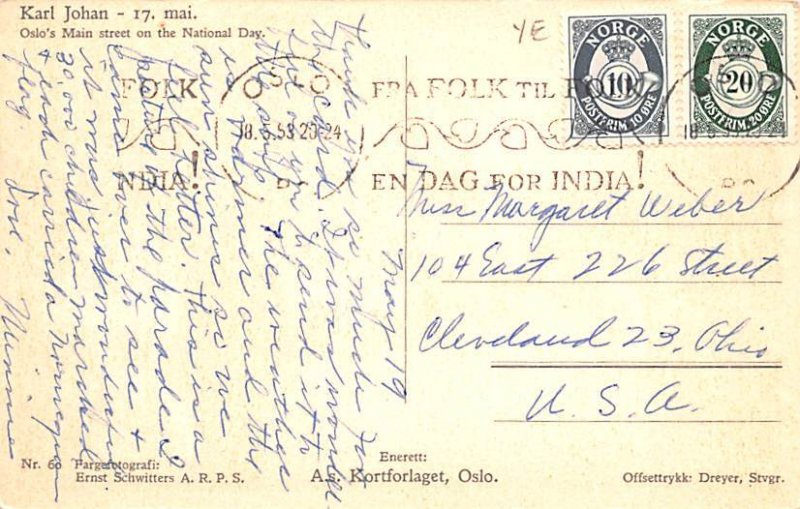 Karl Johan - 17. mai.
Oslo's Main street on the National Day.
YE
NORGE
10
POSTFRIM. 10 ØRE
NORGE
20
POSTFRIM. 20 ØRE
OSLO
18.5.53 20-24
BR
FOLK
INDIA!
FRA FOLK TIL FOLK
EN DAG FOR INDIA!
OSLO
18.5.53.20-24
BR
May 19
Thank you so much for
the card. It was
of you to send it to
the ship. The weather
is warmer and the
sun shines so we
feel better. This is a
picture of the parade I
came over to see &
it was just wonderful.
30,000 children marched
& each carried a Norwegian
flag.
Love, Minnie
Miss Margaret Weber
104 East 226 Street
Cleveland 23, Ohio
U. S. A.
Nr. 60 Fargefotografi:
Ernst Schwitters A. R. P. S.
Enerett:
A.s. Kortforlaget, Oslo.
Offsettrykk: Dreyer, Stvgr.